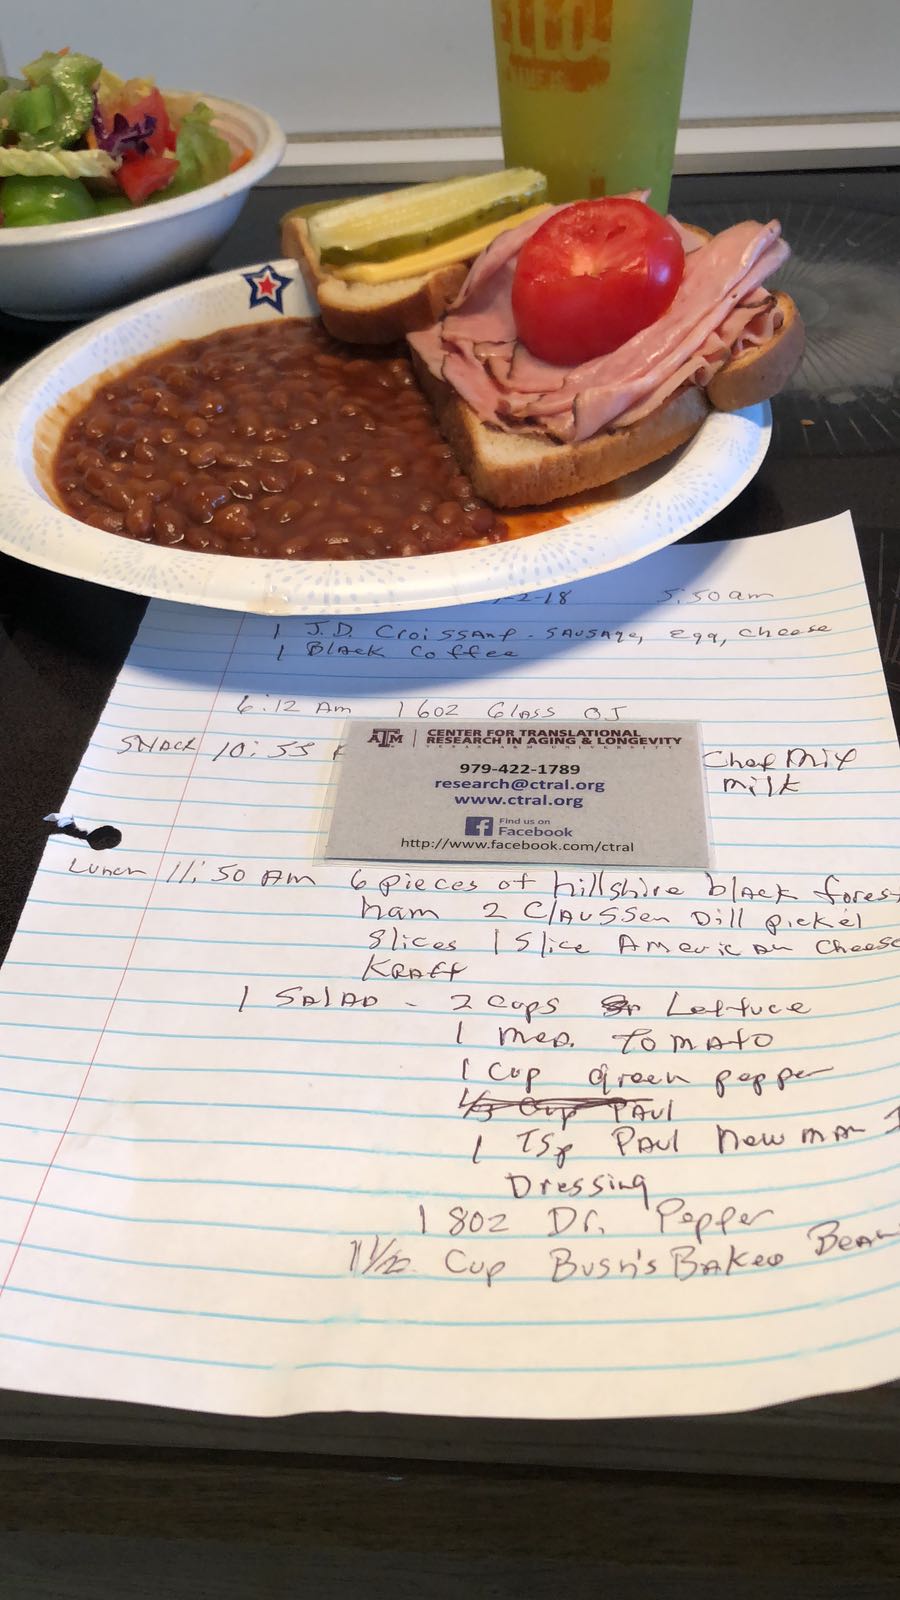 ELLO!
NAME IS
-2-18 5:50am
1 J.D. Croissant - Sausage, Egg, cheese
1 Black Coffee
6:12 Am 16oz Glass OJ
Snack 10:53 Chex Mix
milk
ATM | CENTER FOR TRANSLATIONAL
RESEARCH IN AGING & LONGEVITY
TEXAS A&M UNIVERSITY
979-422-1789
research@ctral.org
www.ctral.org
f Find us on
Facebook
http://www.facebook.com/ctral
Lunch 11:50 Am 6 pieces of hillshire black forest
ham 2 Claussen Dill pickel
Slices 1 Slice American Cheese
Kraft
1 Salad - 2 cups Lettuce
1 med. tomato
1 Cup green pepper
1/3 Cup Paul
1 Tsp Paul Newman
Dressing
1 8oz Dr. Pepper
1 1/2 Cup Bush's Baked Bean